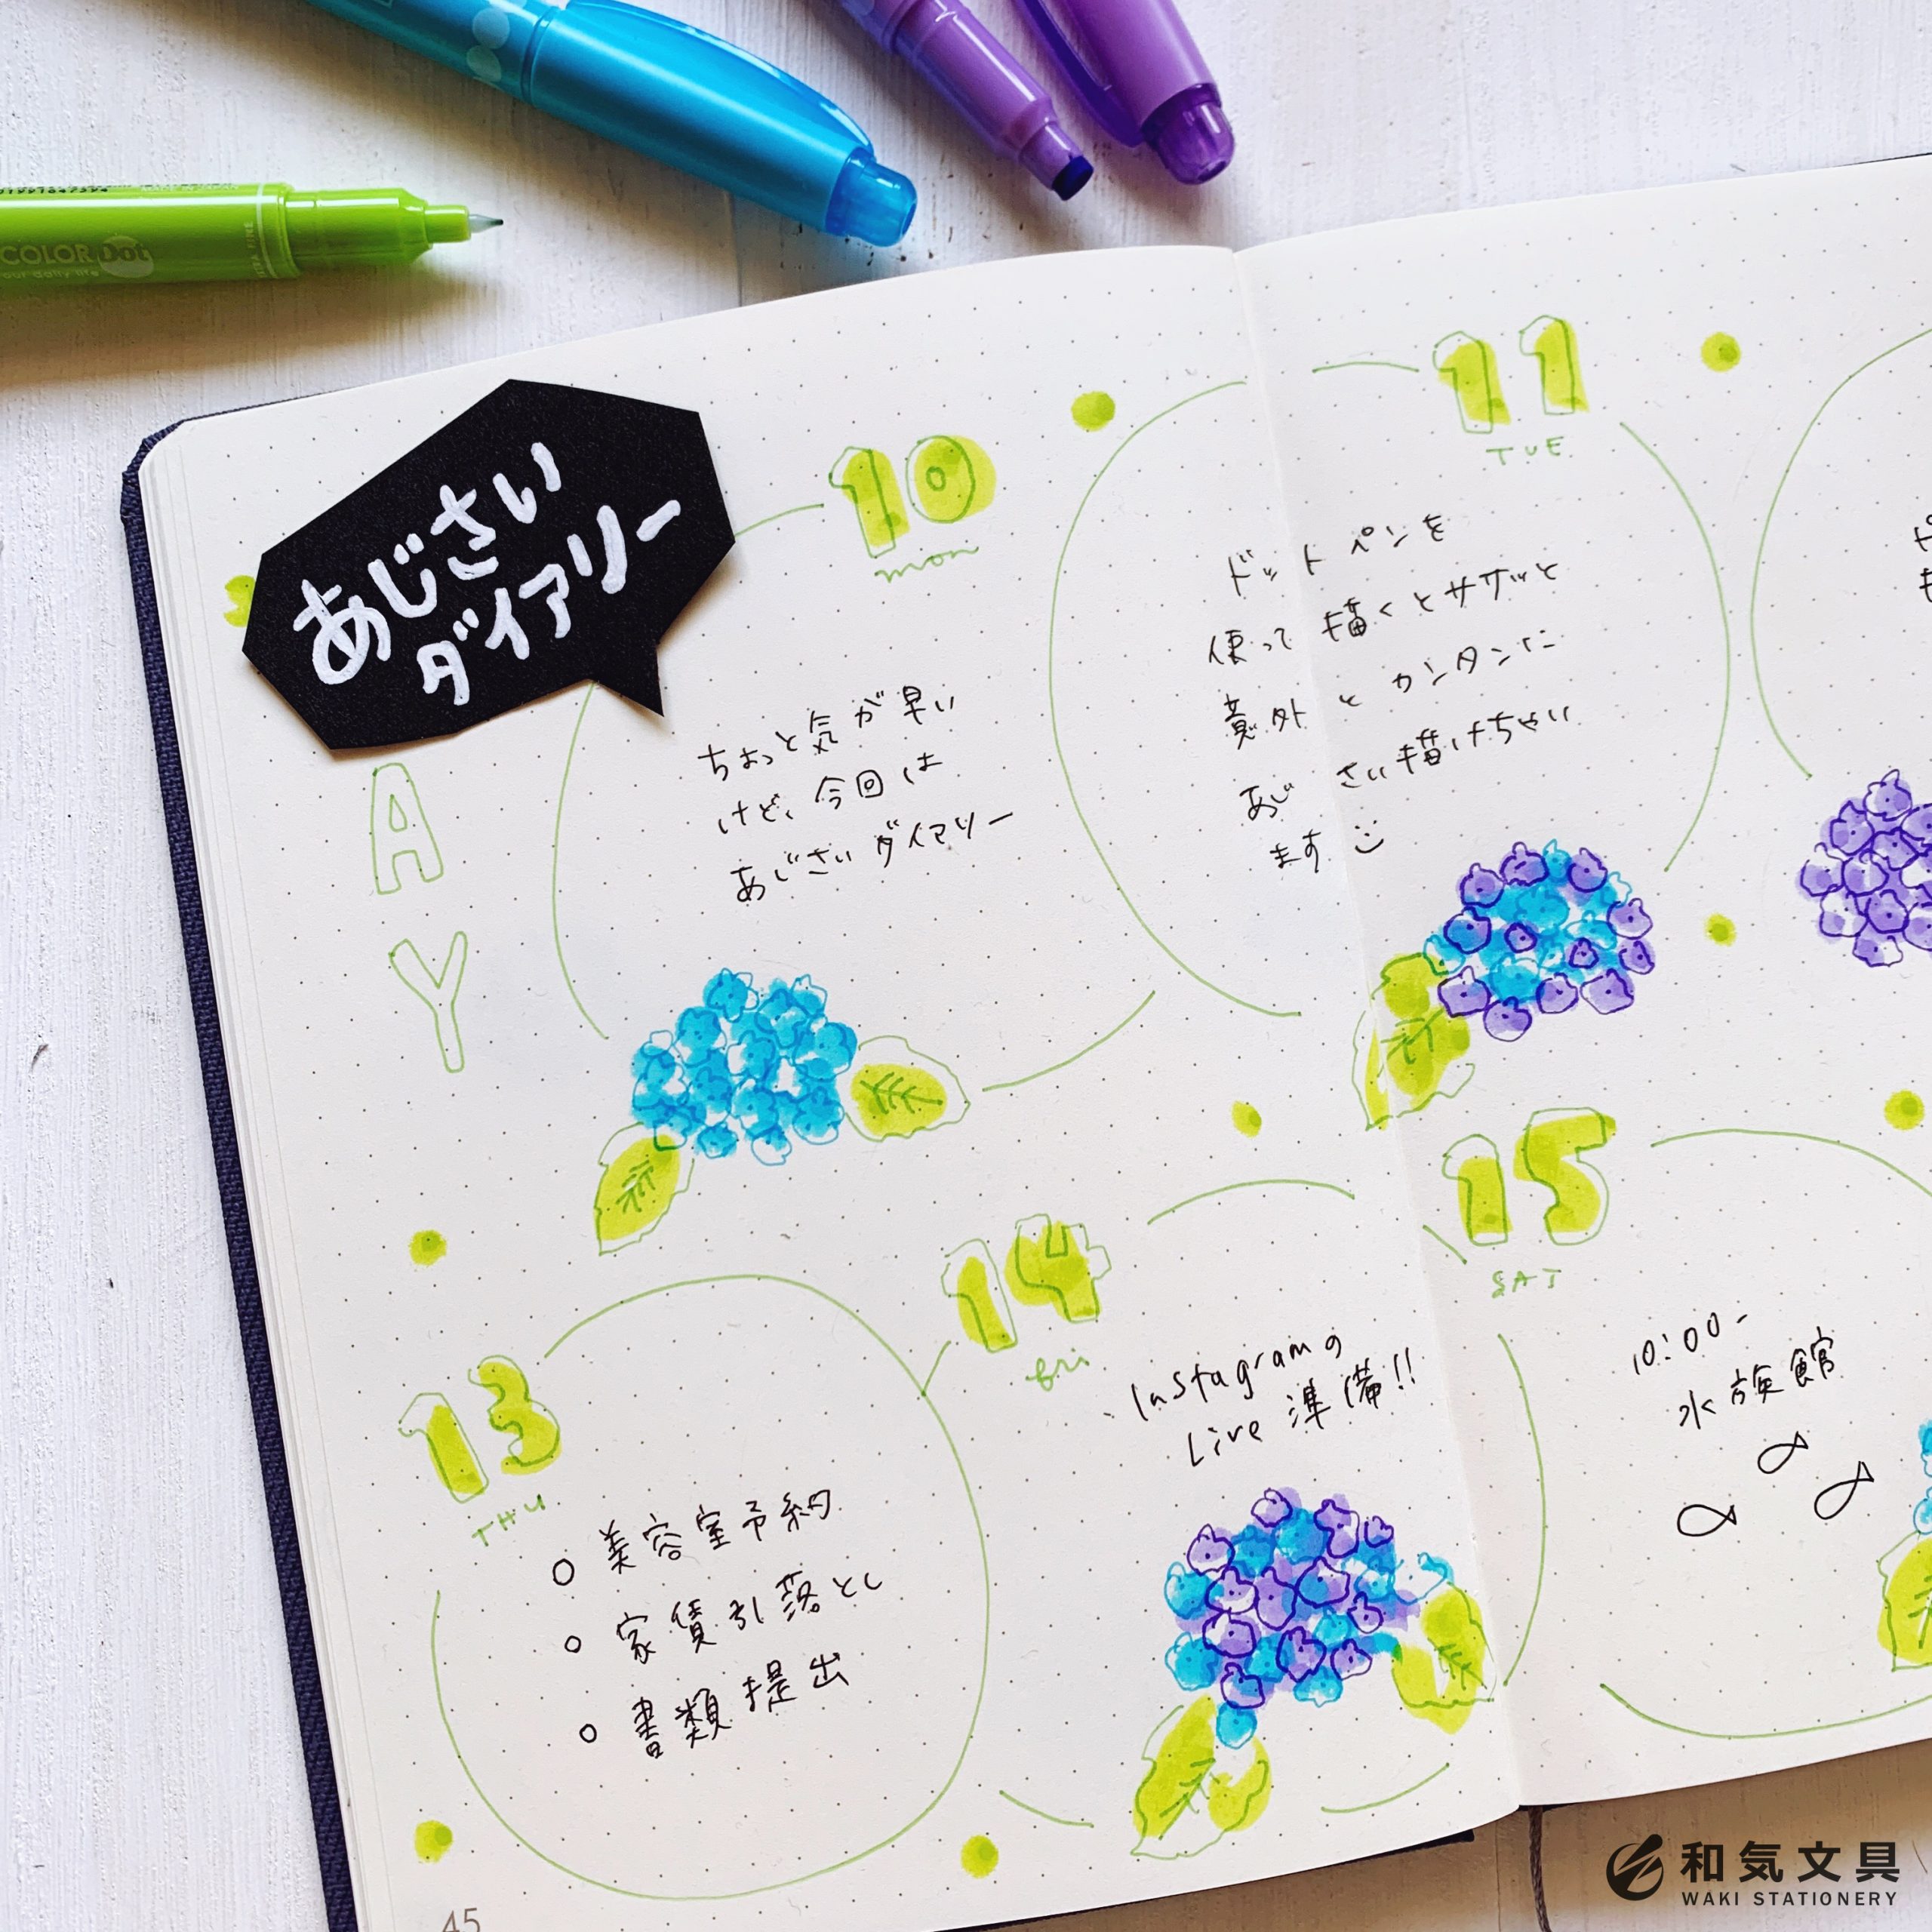 COLOR Dot
our daily life
あじさい
ダイアリー
AY
10
mon
ちょっと気が早い
けど、今回は
あじさいダイアリー
11
TUE
ドットペンを
使って描くとササッと
意外とカンタンに
あじさい描けちゃい
ます
13
THU
美容室予約
家賃引落とし
書類提出
14
fri
Instagramの
Live準備!!
15
SAT
10:00-
水族館
45
和気文具
WAKI STATIONERY